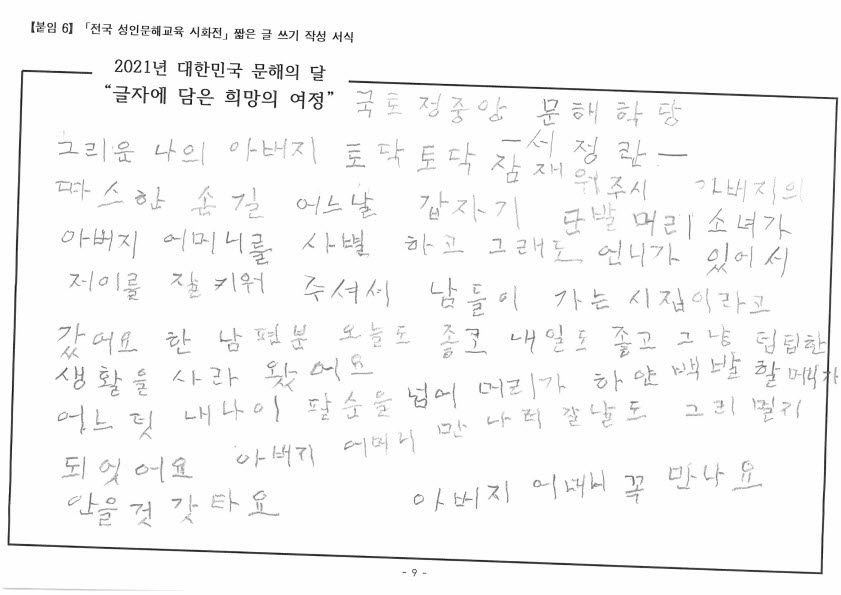 【붙임 6】「전국 성인문해교육 시화전」 짧은 글 쓰기 작성 서식
2021년 대한민국 문해의 달
“글자에 담은 희망의 여정”
국토정중앙 문해학당
－서정란－
그리운 나의 아버지 토닥토닥 잠재워주시 아버지의
따스한 손길 어느날 갑자기 단발머리소녀가
아버지 어머니를 사별 하고 그래도 언니가 있어서
저이를 잘키워 주셔서 남들이 가는 시집이라고
갔어요 한 남편분 오늘도 좋코 내일도 좋고 그냥 텁텁한
생활을 사라 왔어요
어느덧 내나이 팔순을 넘어 머리가 하얀 백발 할머니가
되었어요 아버지 어머니 만나러 갈날도 그리 멀리
안을것 갓타요 아버지 어머니 꼭 만나요
- 9 -